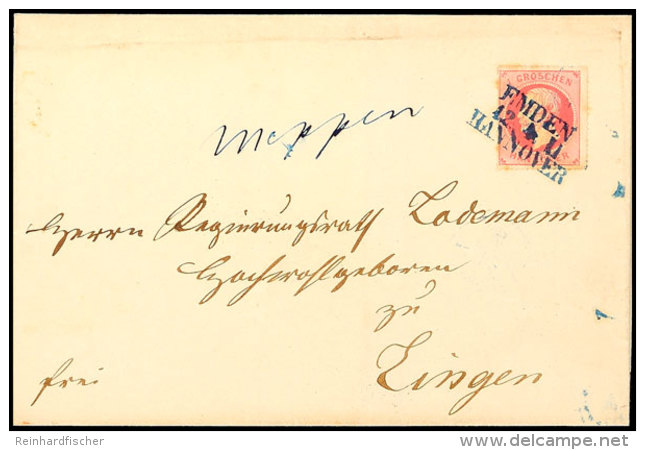 GROSCHEN
EMDEN
12 4 U
HANNOVER
HANNOVER
Meppen
Herrn Regierungsrath Lodemann
Hochwohlgeboren
zu
Lingen
frei
Reinhardfischer
delcampe.net